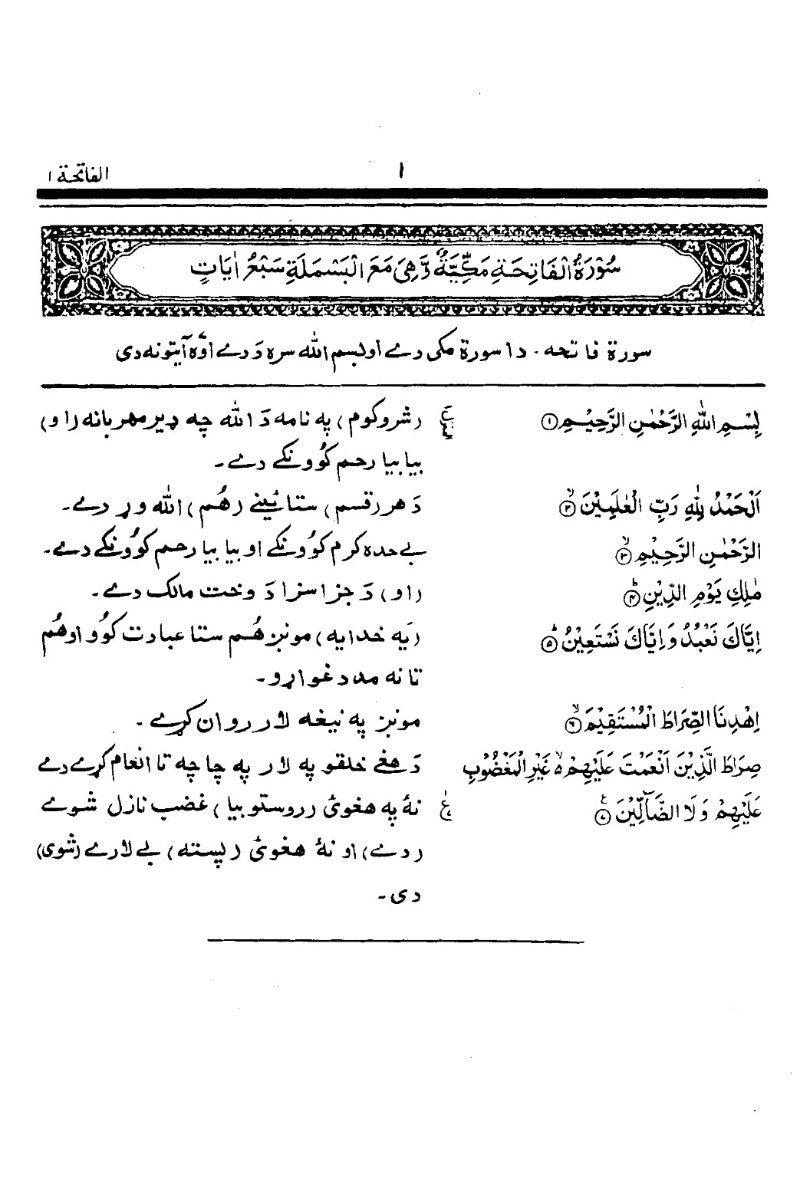 الفاتحة ١
١
سُوْرَةُ الْفَاتِحَةِ مَكِّيَّةٌ وَّهِيَ مَعَ الْبَسْمَلَةِ سَبْعُ اٰيَاتٍ
سورة فاتحه. دا سورة مکی دے او بسم الله سره دَ دے اوٗه آيتونه دی
بِسْمِ اللّٰهِ الرَّحْمٰنِ الرَّحِيْمِ ۝١
(شروکوم) په نامه دَ الله چه ډير مهربانه (او)
بيا بيا رحم کوُونکے دے۔
اَلْحَمْدُ لِلّٰهِ رَبِّ الْعٰلَمِيْنَ ۝٢ۙ
دَ هر (قسم) ستائينے (هُم) الله وړ دے۔
الرَّحْمٰنِ الرَّحِيْمِ ۝٣ۙ
بے حده کرم کوُونکے او بيا بيا رحم کوُونکے دے۔
مٰلِكِ يَوْمِ الدِّيْنِ ۝٤ؕ
(او) دَ جزا سزا دَ وخت مالک دے۔
اِيَّاكَ نَعْبُدُ وَاِيَّاكَ نَسْتَعِيْنُ ۝٥ؕ
(يَه خدايه) مونږ هُم ستا عبادت کوُو او هُم
تا نه مدد غواړو۔
اِهْدِنَا الصِّرَاطَ الْمُسْتَقِيْمَ ۝٦ۙ
مونږ په نيغه لار روان کړے۔
صِرَاطَ الَّذِيْنَ اَنْعَمْتَ عَلَيْهِمْ ۙ۬ غَيْرِ الْمَغْضُوْبِ
دَ هغے خلقو په لار په چا چه تا انعام کړے دے
عَلَيْهِمْ وَلَا الضَّآلِّيْنَ ۝٧ع
نهٔ په هغوئ (روستو بيا) غضب نازل شوے
(دے) او نهٔ هغوئ (پسته) بے لارے (شوی)
دی۔